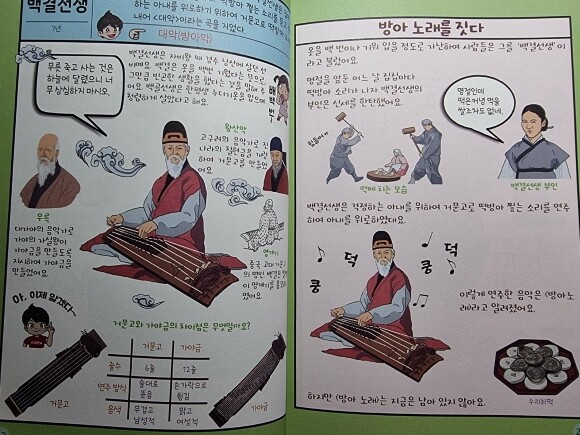 백결선생
?년
하는 아내를 위로하기 위하여 거문고로 떡방아
내어 <대악>이라는 곡을 지었다.
대악(방아악)
무릇 죽고 사는 것은
하늘에 달렸으니 너
무 상심하지 마시오.
백결선생은 자비왕 때 경주 낭산에 살던 선
비예요. 백결은 옷을 백번 기웠다는 뜻으로
그만큼 빈곤한 생활을 했다는 것을 말해 주
어요. 백결선생은 한평생 누더기옷을 입으며
청렴하게 살았다고 해요.
왕산악
고구려의 음악가로 진
나라의 칠현금을 개량
하여 거문고를 만들었
어요.
우륵
대가야의 음악가로
가야의 가실왕이
가야금을 만들도록
지시하여 가야금을
만들었어요.
중국 고대
아, 이제 알겠다~
거문고와 가야금의 차이점은 무엇일까요?
거문고 가야금
줄수 6줄 12줄
연주 방식 술대로 뜯음 손가락으로 튕김
음색 무겁고 남성적 맑고 여성적
거문고
가야금
방아 노래를 짓다
옷을 백 번이나 기워 입을 정도로 가난하여 사람들은 그를 '백결선생'이
라고 불렀어요.
명절을 앞둔 어느 날 집집마다
떡방아 소리가 나자 백결선생의
부인은 신세를 한탄했어요.
명절인데
떡은커녕 먹을
쌀조차도 없네.
떡메 치는 모습
백결선생 부인
백결선생은 걱정하는 아내를 위하여 거문고로 떡방아 찧는 소리를 연주
하여 아내를 위로하였대요.
쿵
덕
쿵
덕
이렇게 연주한 음악은 <방아노
래>라고 알려졌어요.
수리취떡
하지만 <방아 노래>는 지금은 남아 있지 않아요.